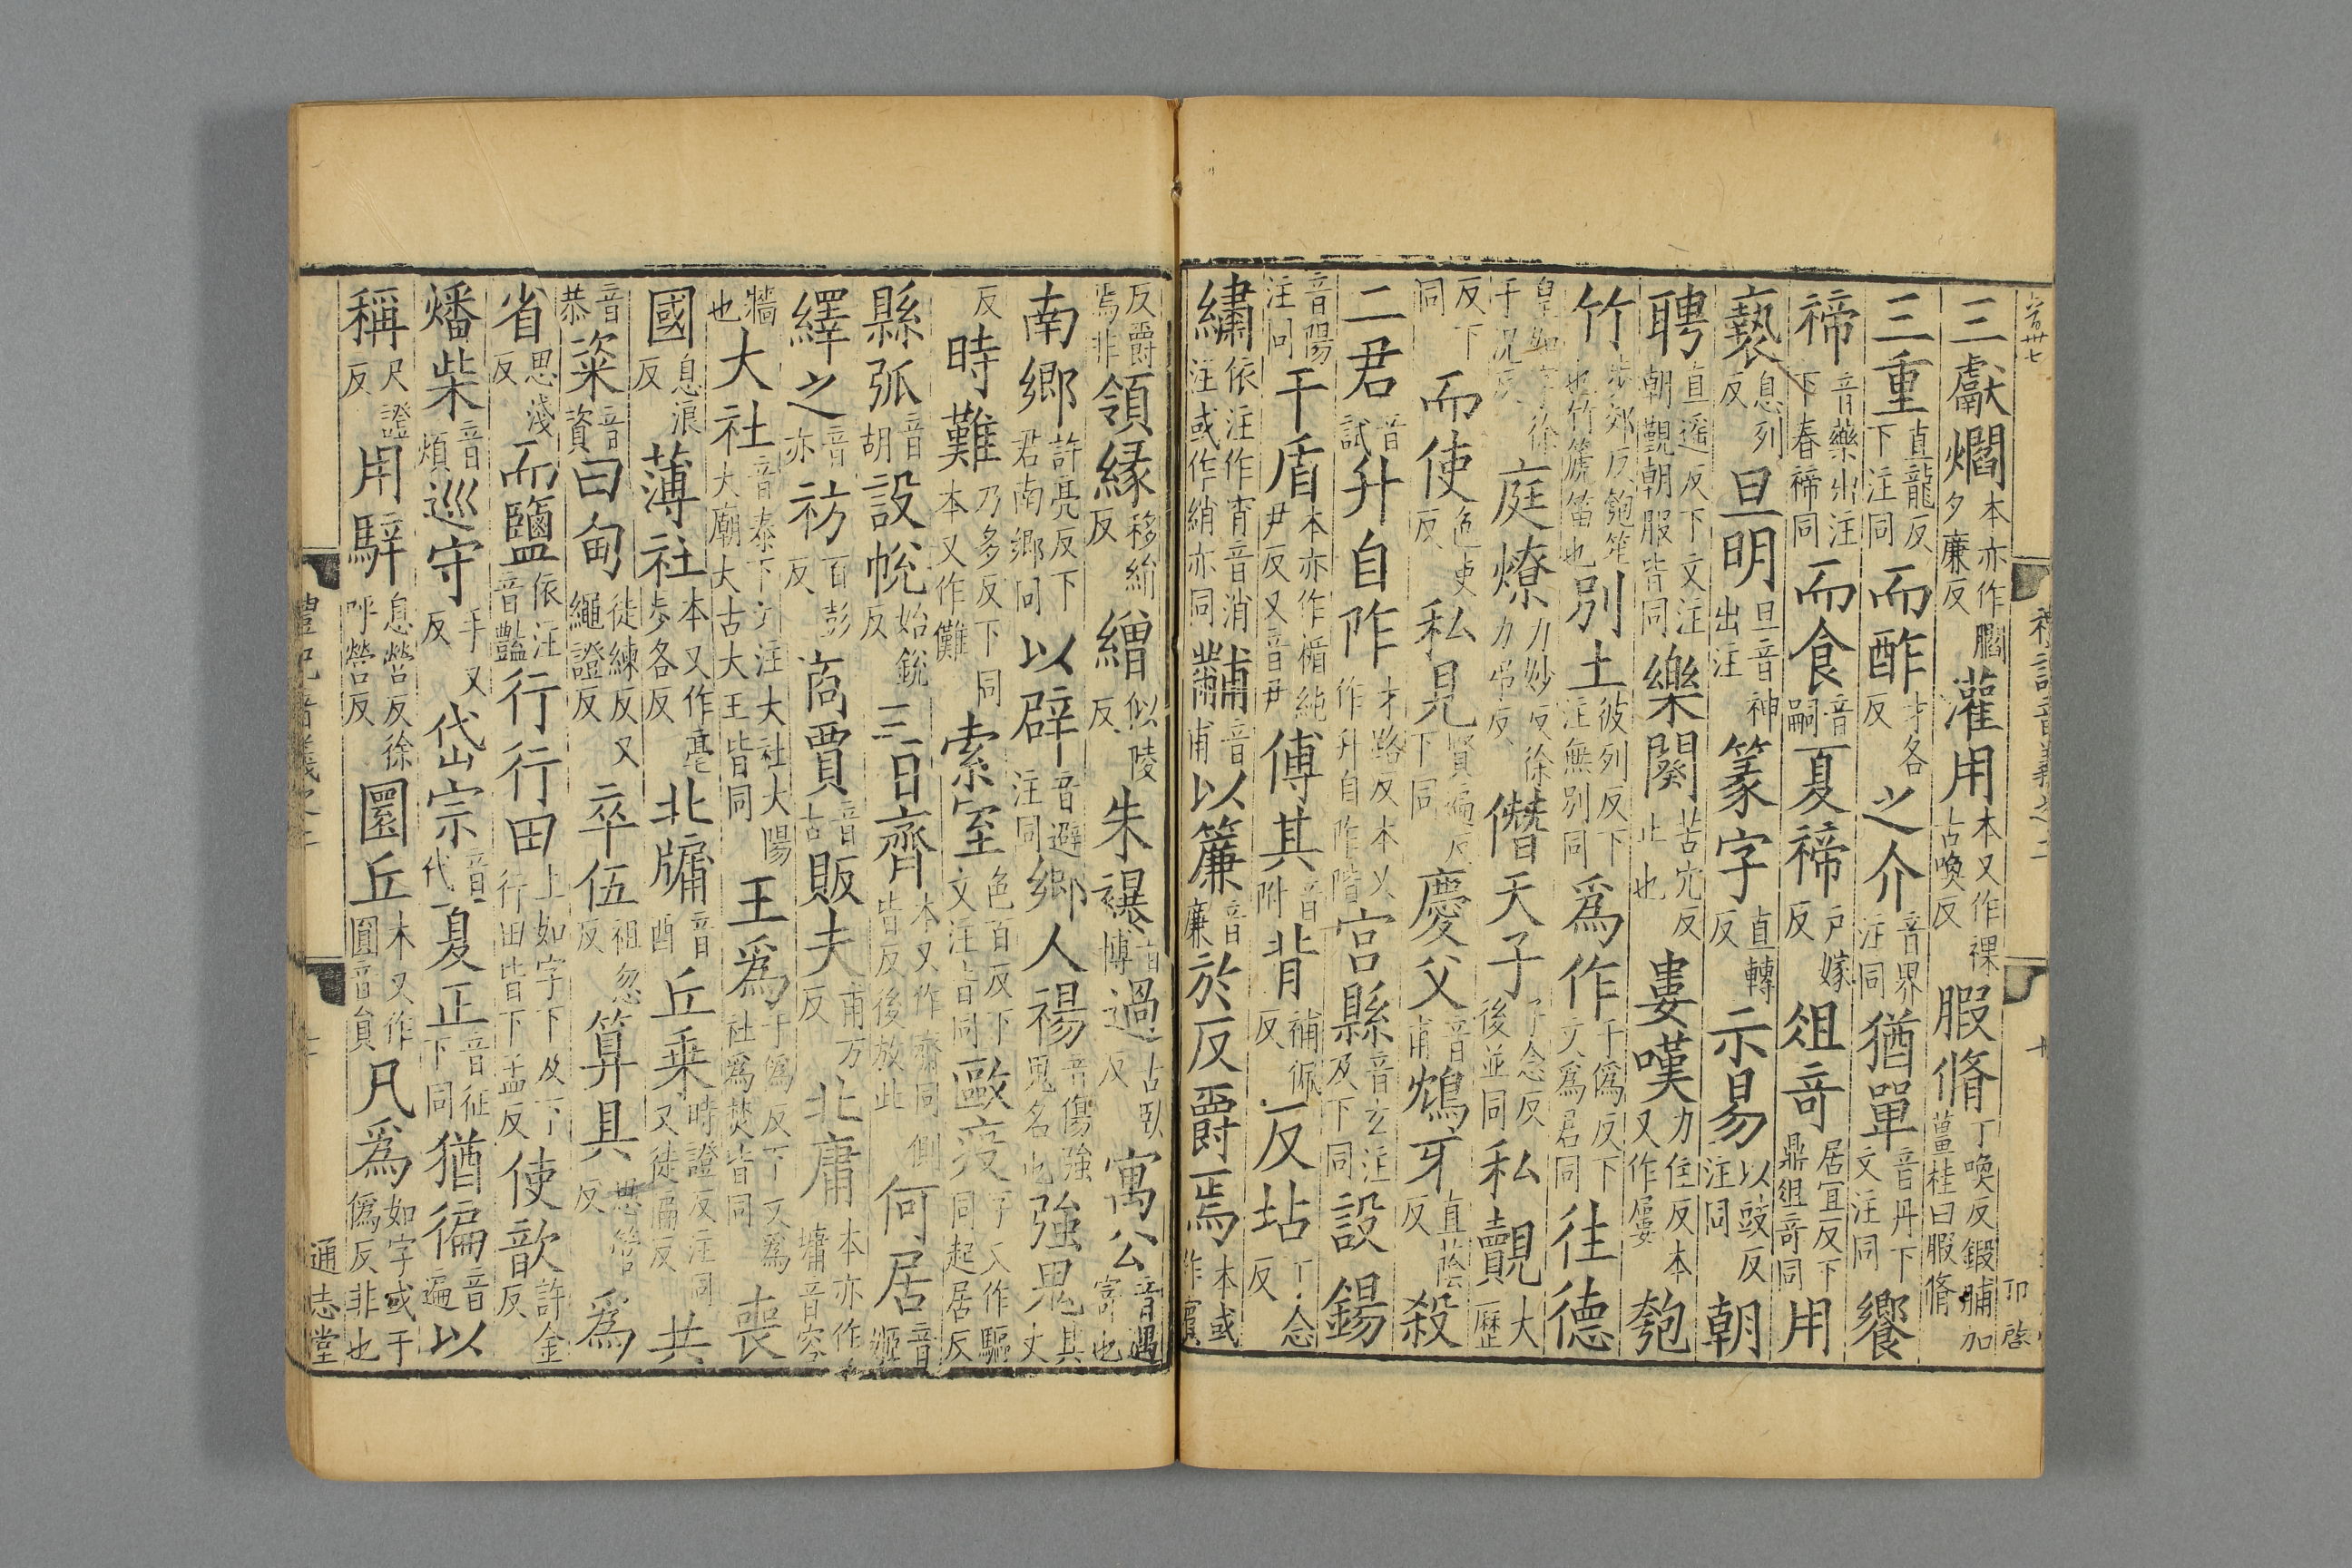 三獻爓本亦作膶夕廉反灌用本又作祼古喚反腶脩丁喚反鍛脯加薑桂曰腶脩
三重直龍反下注同而酢才各反之介音界注同猶單音丹下文注同饗
禘音藥出注下春禘同而食音嗣夏禘戶嫁反俎奇居宜反下鼎俎奇同用
褻息列反旦明旦音神出注篆字直轉反示易以豉反注同朝
聘直遥反下文注朝覲朝服皆同樂闋苦穴反止也婁嘆力住反本又作屢匏
竹步郊反匏笙也竹篪笛也別土彼列反下注無別同爲作于僞反下文爲君同往德
皇如字徐于況反庭燎力妙反徐力弔反僭天子子念反後並同私覿大歷
反下同而使色吏反私見賢遍反下同慶父音甫鴆牙直蔭反殺
二君音試升自阼才路反本又作升自阼階宮縣音玄注及下同設錫
音陽注同干盾本亦作楯純尹反又音尹傅其音附背補佩反反坫丁念反
繡依注作宵音消注或作綃亦同黼音甫以簾音廉於反爵焉本或作賓
反爵焉非領緣移絹反繒似陵反朱襮音博過古臥反寓公音遇寄也
南鄉許亮反下君南鄉同以辟音避注同鄉人禓音傷強鬼名也強鬼其丈
反時難乃多反下同本又作儺索室色百反下文注皆同敺疫字又作驅同起居反
縣弧音胡設帨始銳反三日齊本又作齋同側皆反後放此何居音姬
繹之音亦祊百彭反商賈音古販夫甫万反北庸本亦作墉音容
牆也大社音泰下文注大社大陽大廟大古大王皆同王爲于僞反下文爲社爲焚皆同喪
國息浪反薄社本又作亳步各反北牖音酉丘乘時證反注同又徒偏反共
音恭粢音資曰甸徒練反又繩證反卒伍祖忽反算具悉管反爲
省思淺反而鹽依注音豔行行田上如字下及下行田皆下孟反使歆許金反
燔柴音煩巡守手又反岱宗音代夏正音征下同猶徧音遍以
稱尺證反用騂息營反徐呼營反圜丘本又作圓音員凡爲如字或于僞反非也
通志堂